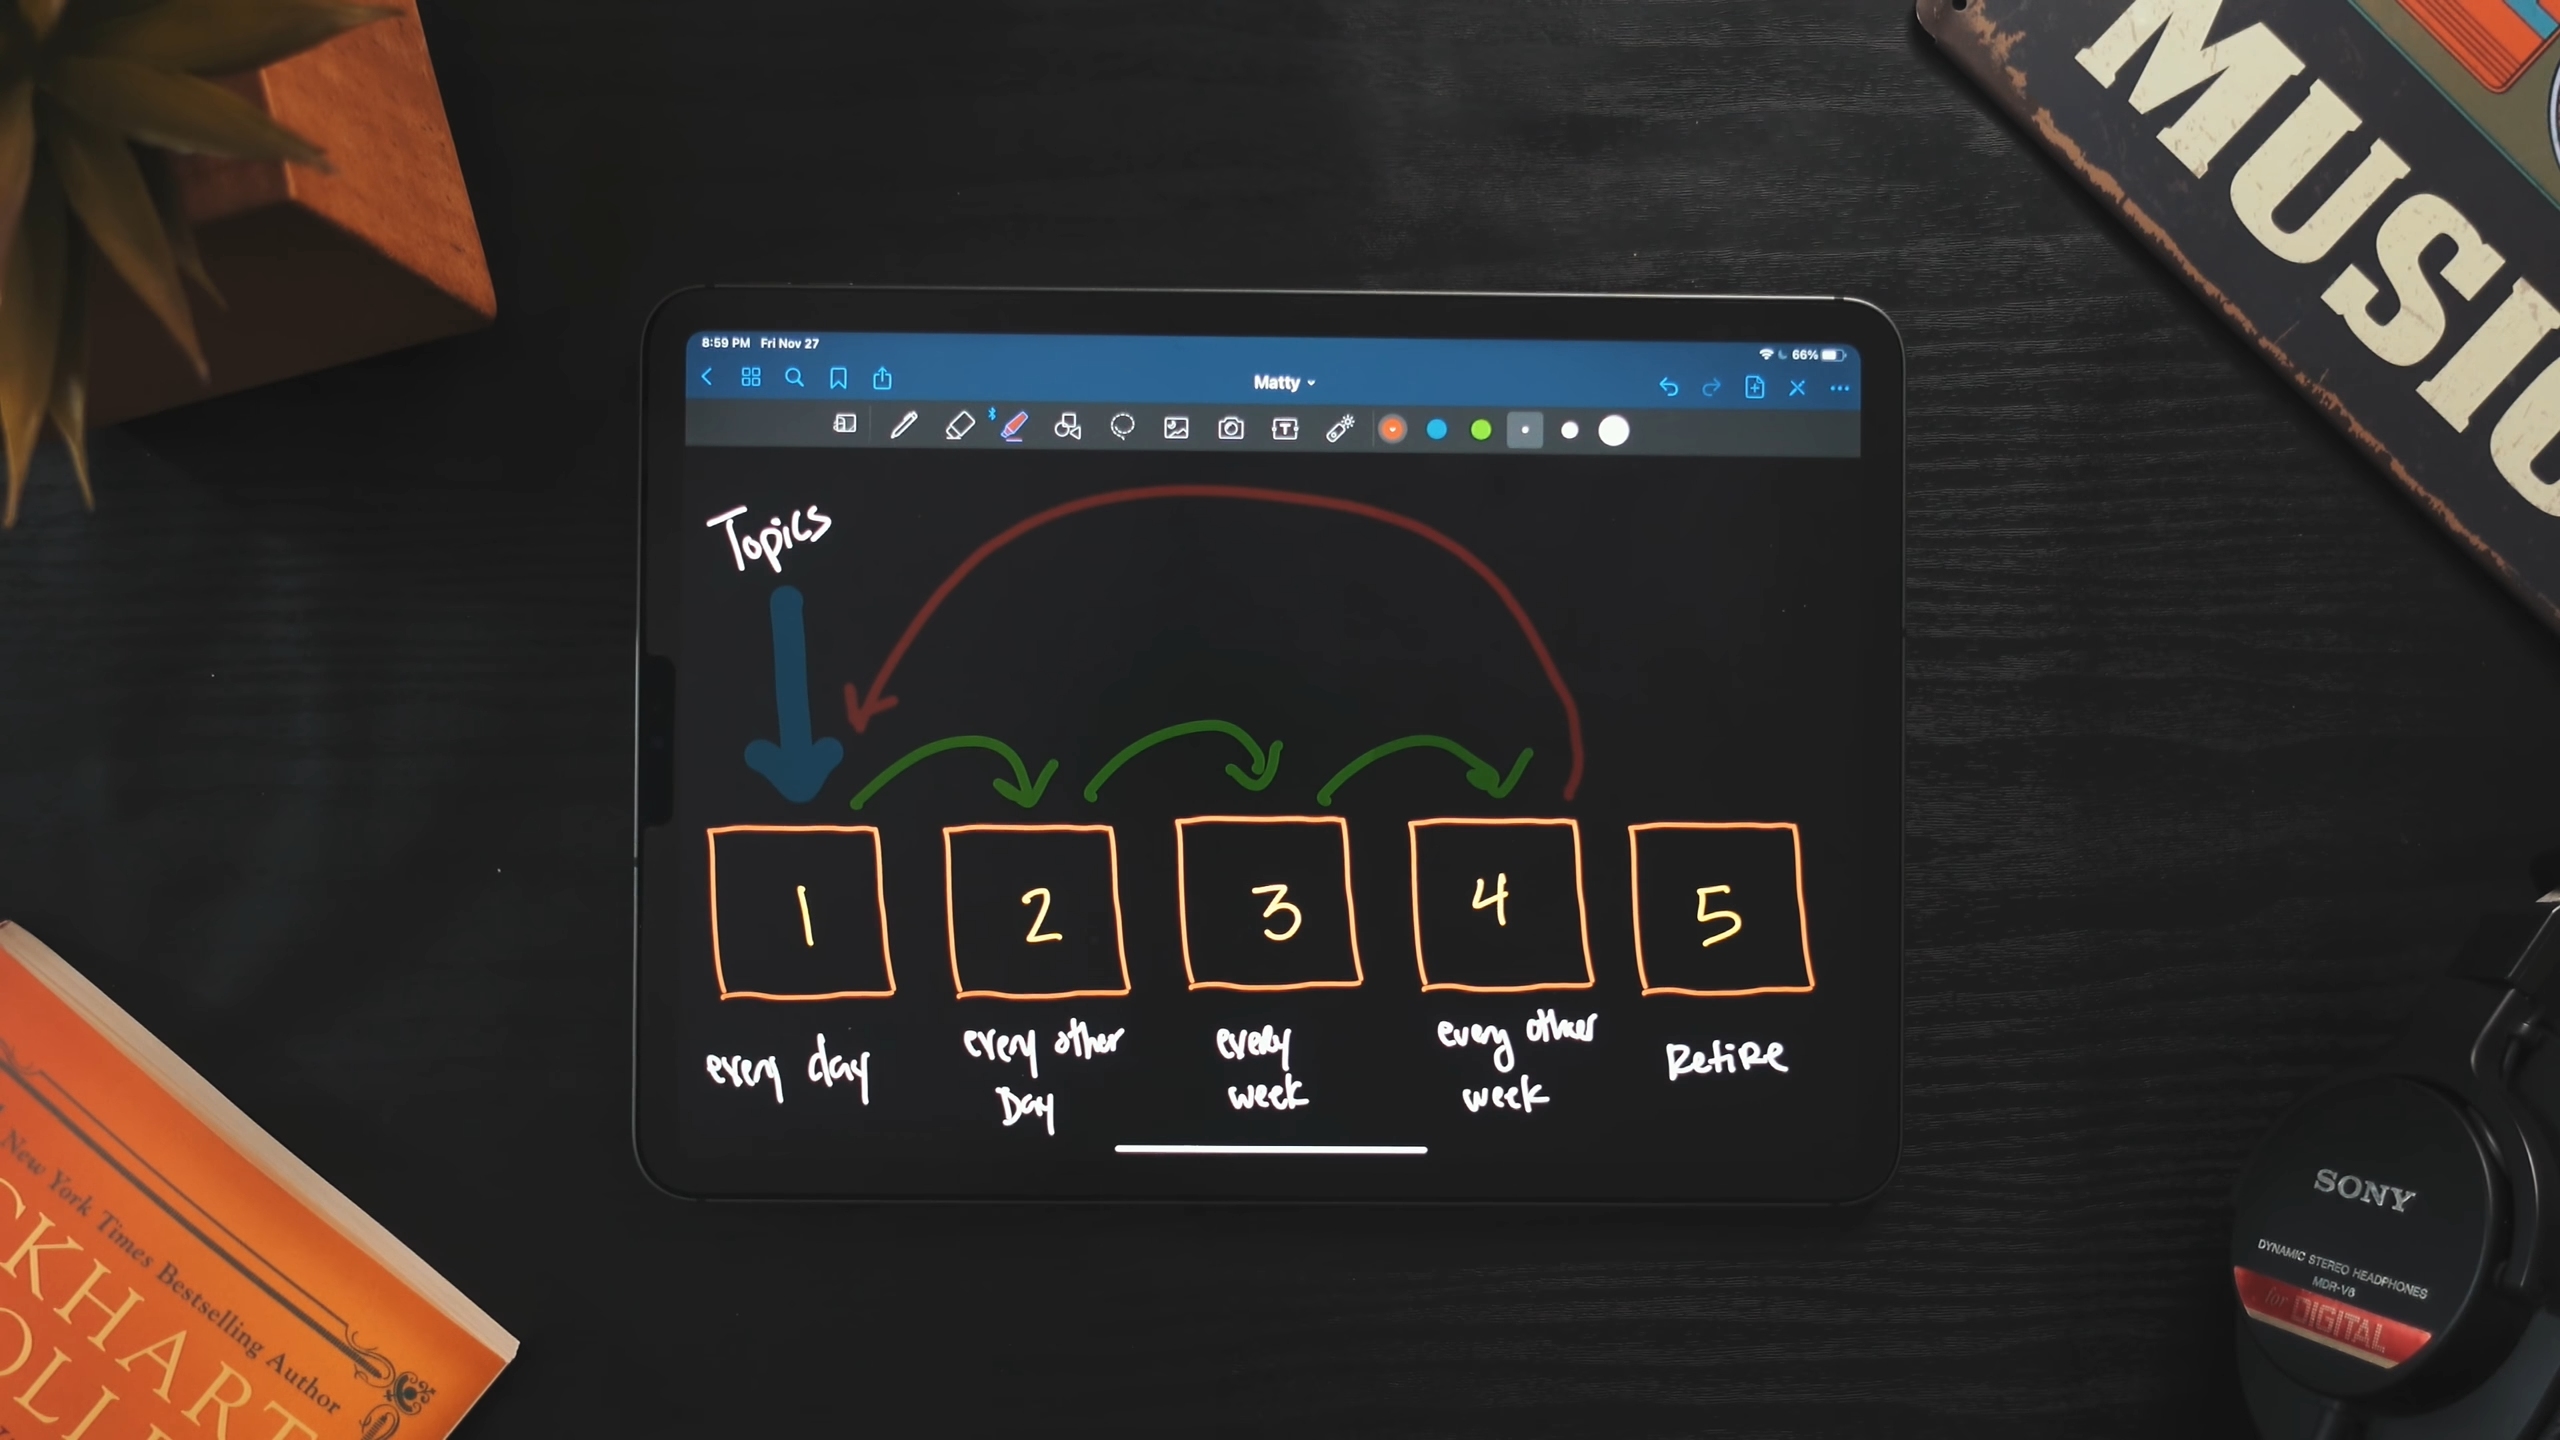 MUSIC
8:59 PM Fri Nov 27
66%
Matty
Topics
1
2
3
4
5
every day
every other
Day
every
week
every other
week
Retire
New York Times Bestselling Author
SONY
DYNAMIC STEREO HEADPHONES
MDR-V6
for DIGITAL